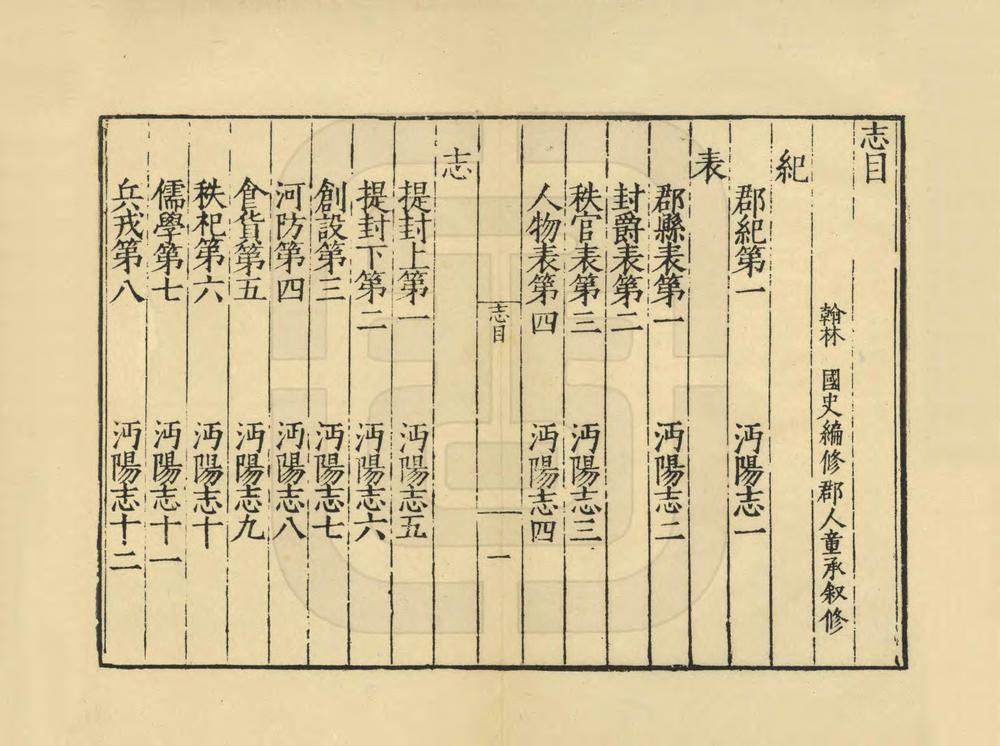 志目
翰林 國史編修郡人童承叙修
紀
郡紀第一 沔陽志一
表
郡縣表第一 沔陽志二
封爵表第二
秩官表第三 沔陽志三
人物表第四 沔陽志四
志目 一
志
提封上第一 沔陽志五
提封下第二 沔陽志六
創設第三 沔陽志七
河防第四 沔陽志八
食貨第五 沔陽志九
秩祀第六 沔陽志十
儒學第七 沔陽志十一
兵戎第八 沔陽志十二